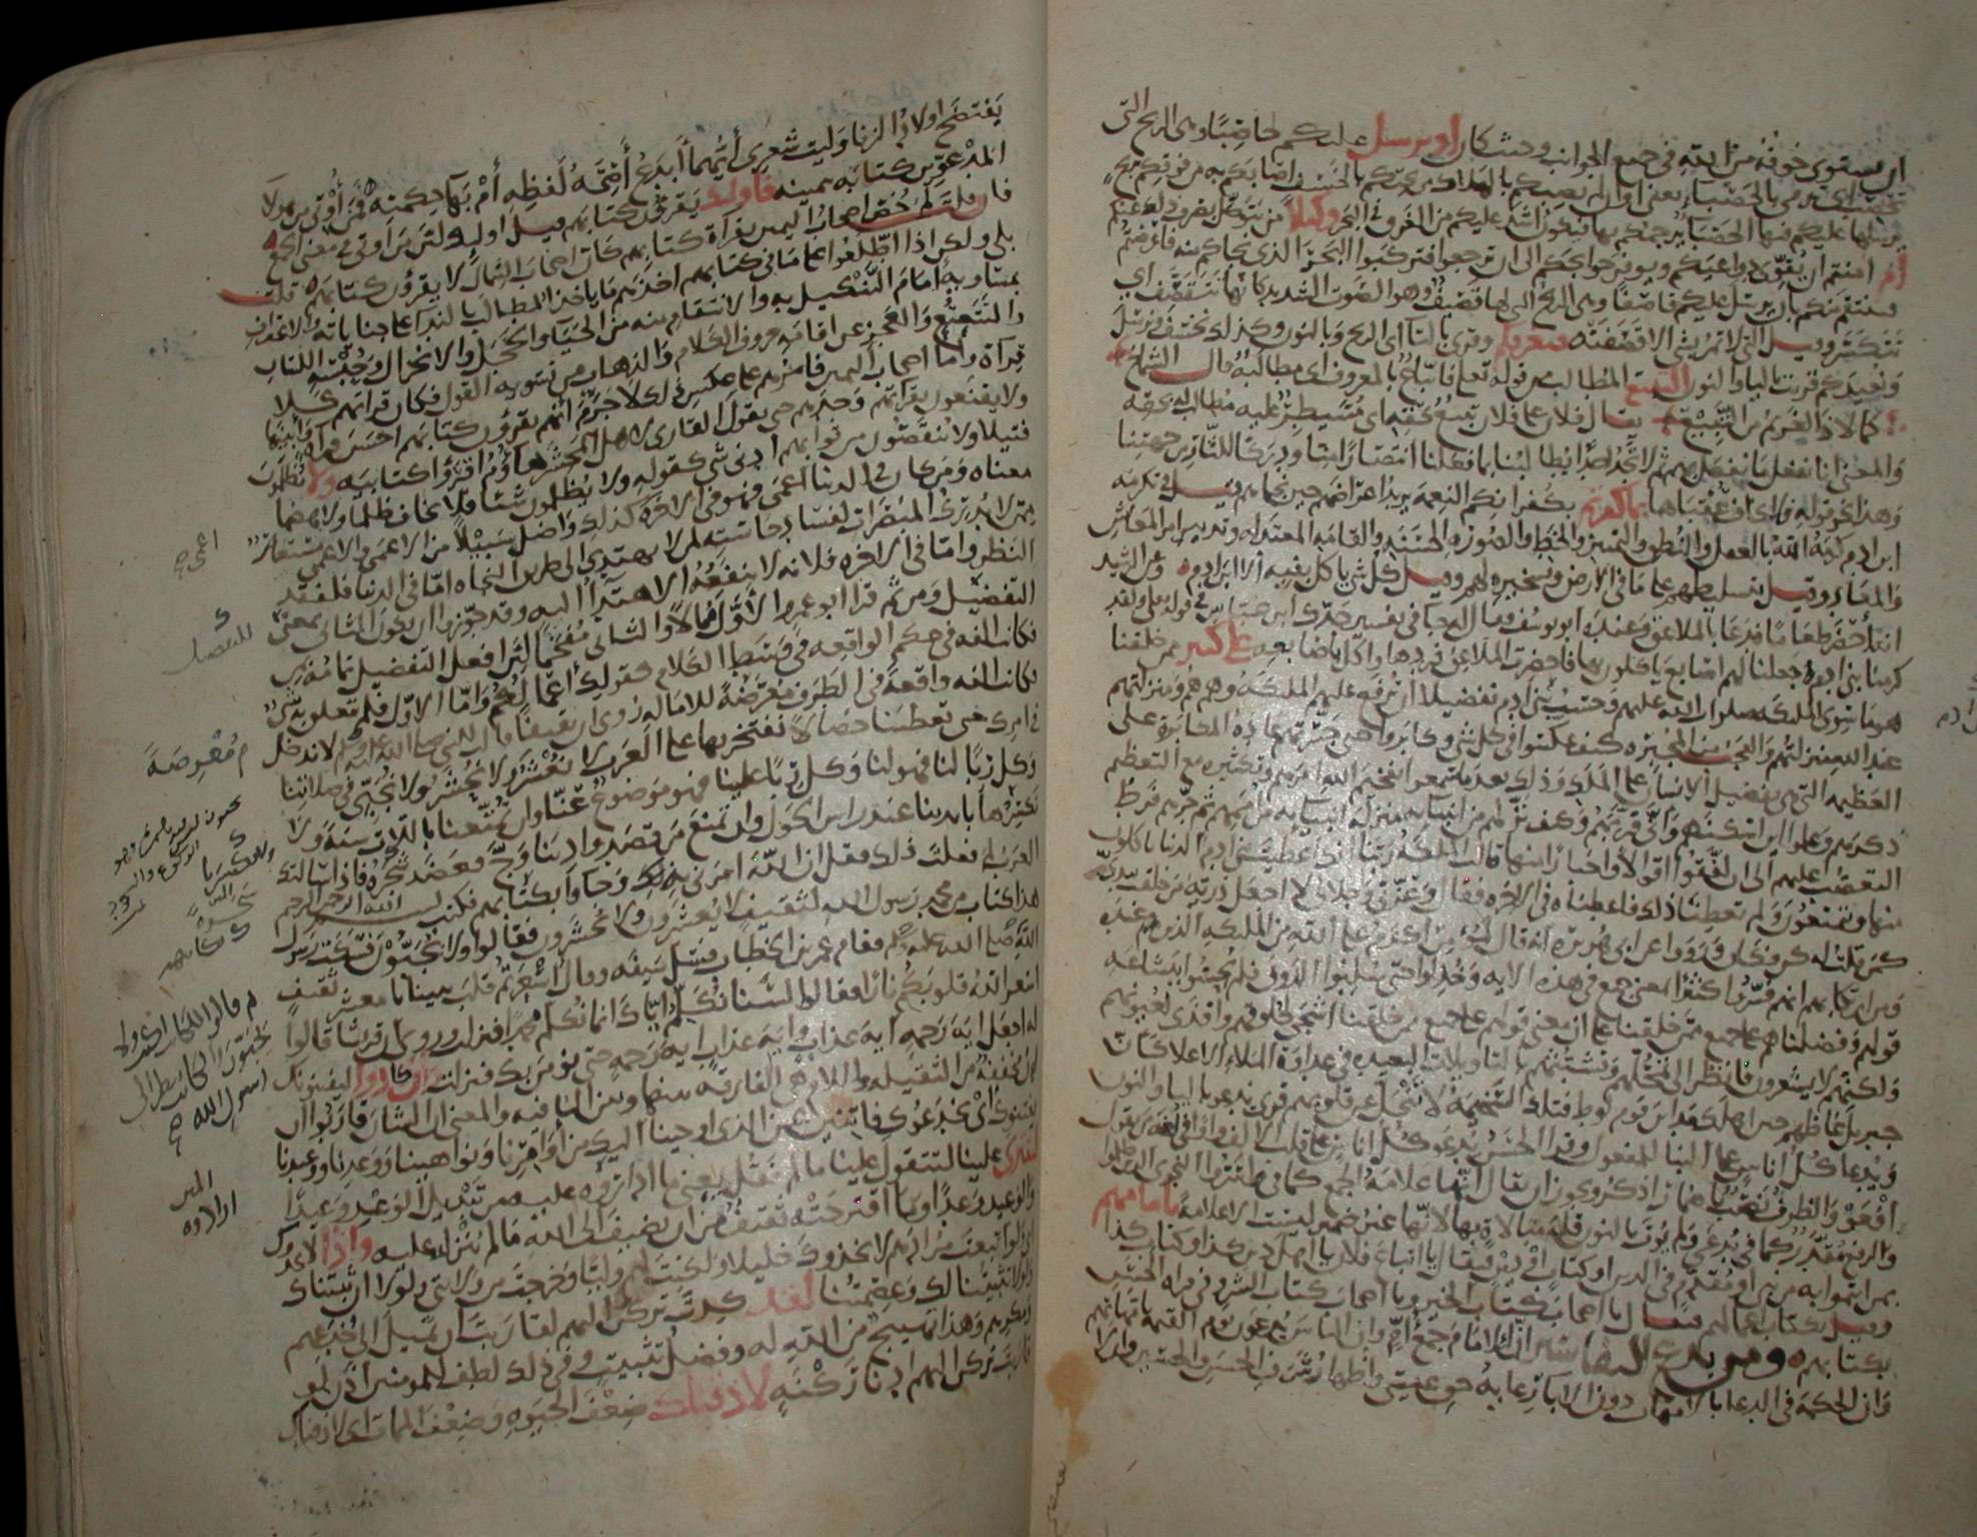 ان يستوي خوفه من الله في جميع الجوانب وحيث كان او يرسل عليكم حاصبا وهي الريح التي
تحصب اي ترمي بالحصباء يعني او ان لم يصبكم بالهلاك من تحتكم بالخسف اصابكم به من فوقكم بريح
يرسلها عليكم فيها الحصباء يرجمكم بها فيكون اشد عليكم من الغرق في البحر وكيلا من يتوكل بصرف ذلك عنكم
ام امنتم ان يقوي دواعيكم ويوفر حوائجكم الى ان ترجعوا فتركبوا البحر الذي نجاكم منه فاعرضتم
فينتقم منكم بان يرسل عليكم قاصفا وهي الريح التي لها قصيف وهو الصوت الشديد كانها تتقصف اي
تتكسر وقيل التي لا تمر بشي الا قصفته فيغرقكم وقري بالتا اي الريح وبالنون وكذلك نخسف ونرسل
ونعيدكم قريت باليا والنون التبيع المطالب من قوله تعلى فاتباع بالمعروف اي مطالبة قال الشماخ
كما لاذ الغريم من التبيع يقال فلان على فلان تبيع بحقه اي مسيطر عليه مطالب له بحقه
والمعنى انا نفعل ما نفعل بهم ثم لا تجد احدا يطالبنا بما فعلنا انتصارا منا ودركا للثار من جهتنا
وهذا نحو قوله ولا يخاف عقباها بما كفرتم بكفرانكم النعمة يريد اعراضهم حين نجاهم قيل في تكرمة
ابن ادم كرمه الله بالعقل والنطق والتمييز والخط والصورة الحسنة والقامة المعتدلة وتدبير امر المعاش
والمعاد وقيل بتسليطهم على ما في الارض وتسخيره لهم وقيل كل شي ياكل بفيه الا ابن ادم وعن الرشيد
انه احضر طعاما فدعا بالملاعق وعنده ابو يوسف فقال له جا في تفسير جدك ابن عباس في قوله تعلى ولقد
كرمنا بني ادم جعلنا لهم اصابع ياكلون بها فاحضرت الملاعق فردها واكل باصابعه على كثير ممن خلقنا
هو ما سوى الملائكة صلوات الله عليهم وحسب بني ادم تفضيلا ان ترفع عليهم الملائكة وهم هم ومنزلتهم
عند الله منزلتهم والعجب من المجبرة كيف عكسوا في كل شي وكابروا حتى جسرتهم عادة المكابرة على
العظيمة التي هي تفضيل الانسان على الملك وذلك بعد ما سمعوا تفخيم الله امرهم وتكثيره مع التعظيم
ذكرهم وعلموا اين اسكنهم وانى قربهم وكيف نزلهم من انبيائه منزلة انبيائه من اممهم ثم جرهم فرط
التعصب عليهم الى ان لفقوا اقوالا واخبارا منها قالت الملائكة ربنا انك اعطيت بني ادم الدنيا ياكلون
منها ويتمتعون ولم تعطنا ذلك فاعطناه في الاخرة فقال وعزتي وجلالي لا اجعل ذرية من خلقت بيدي
كمن قلت له كن فكان ورووا عن ابي هريرة انه قال المؤمن اكرم على الله من الملائكة الذين عنده
ومن ارتكابهم انهم فسروا كثيرا بمعنى جميع في هذه الاية وخذلوا حتى سلبوا الذوق فلم يحسوا ببشاعة
قولهم وفضلناهم على جميع ممن خلقنا على ان معنى قولهم على جميع ممن خلقنا اشجى لحلوقهم واقذى لعيونهم
ولكنهم لا يشعرون فانظر الى تمحلهم وتشبثهم بالتاويلات البعيدة في عداوة الملاء الاعلى كان
جبريل غاظهم حين اهلك مداين قوم لوط فتلك السخيمة لا تنحل عن قلوبهم قري يدعو باليا والنون
ويدعا كل اناس على البنا للمفعول وقرا الحسن يدعو كل اناس على قلب الالف واوا في لغة من يقول
افعو والظرف نصب باضمار اذكر ويجوز ان يقال انها علامة الجمع كما في واسروا النجوى الذين ظلموا
والرفع مقدر كما في يدعى ولم يؤت بالنون قلة مبالاة بها لانها غير ضمير ليست الا علامة بامامهم
بمن ائتموا به من نبي او مقدم في الدين او كتاب او دين فيقال يا اتباع فلان يا اهل دين كذا وكتاب كذا
وقيل بكتاب اعمالهم فيقال يا اصحاب كتاب الخير ويا اصحاب كتاب الشر وفي قراة الحسن
بكتابهم ومن بدع التفاسير ان الامام جمع ام وان الناس يدعون يوم القيمة بامهاتهم
وان الحكمة في الدعا بالامهات دون الابا رعاية حق عيسى واظهار شرف الحسن والحسين وان لا
يفتضح اولاد الزنا وليت شعري ايهما ابدع اصحة لفظه ام بهآ حكمته فمن اوتي من هولا
المدعوين كتابه بيمينه فاولئك يقرؤن كتابهم قيل اوليك لان من اوتي في معنى الجمع
فان قلت لم خص اصحاب اليمين بقراة كتابهم كان اصحاب الشمال لا يقرؤن كتابهم قلت
بلى ولكن اذا اطلعوا على ما في كتابهم اخذهم ما ياخذ المطالب بالندا على جناياته والاعتراف
بمساويه امام التنكيل به والانتقام منه من الحيا والخجل والانخزال وحبسة اللسان
والتتعتع والعجز عن اقامة حروف الكلام والذهاب عن تسوية القول فكان قراتهم كلا
قراة واما اصحاب اليمين فامرهم على عكس ذلك لا جرم انهم يقرؤن كتابهم احسن قراة وابينها
ولا يقنعون بقراتهم وحدهم حتى يقول القاري لاهل المحشر هاؤم اقرؤا كتابيه ولا يظلمون
فتيلا ولا ينقصون من ثوابهم ادنى شي كقوله ولا يظلمون شيئا فلا يخاف ظلما ولا هضما
معناه ومن كان في الدنيا اعمى فهو في الاخرة كذلك واضل سبيلا من الاعمى والاعمى مستعار
ممن لا يدرك المبصرات لفساد حاسته لمن لا يهتدي الى طريق النجاة اما في الدنيا فلفقد
النظر واما في الاخرة فلانه لا ينفعه الاهتدا اليه وقد جوزوا ان يكون الثاني بمعنى
التفضيل ومن ثم قرا ابو عمرو الاول ممالا والثاني مفخما لان افعل التفضيل تمامه بمن
فكانت الفه في حكم الواقعة في وسط الكلام كقولك اعمالكم واما الاول فلم يتعلق به شي
فكانت الفه واقعة في الطرف معرضة للامالة روي ان ثقيفا قالت للنبي صلى الله عليه وسلم لا ندخل
في امرك حتى تعطينا خصالا نفتخر بها على العرب لا نعشر ولا نحشر ولا نجبي في صلاتنا
وكل ربا لنا فهو لنا وكل ربا علينا فهو موضوع عنا وان تمتعنا باللات سنة ولا
نكسرها بايدينا عند راس الحول وان تمنع من قصد وادينا وج فعضد شجره فاذا سالتك
العرب لم فعلت ذلك فقل ان الله امرني به وجاوا بكتابهم فكتب بسم الله الرحمن الرحيم
هذا كتاب من محمد رسول الله لثقيف لا يعشرون ولا يحشرون فقالوا ولا يجبون فسكت رسول
الله صلى الله عليه وسلم فقام عمر بن الخطاب فسل سيفه وقال اسعرتم قلب نبينا يا معشر ثقيف
اسعر الله قلوبكم نارا فقالوا لسنا نكلم اياك انما نكلم محمدا فنزلت وروي ان قريشا قالوا
له اجعل اية رحمة اية عذاب واية عذاب اية رحمة حتى نؤمن بك فنزلت وان كادوا ليفتنونك
ان مخففة من الثقيلة واللام هي الفارقة بينها وبين النافية والمعنى ان الشان قاربوا ان
يفتنوك اي يخدعوك فاتنين عن الذي اوحينا اليك من اوامرنا ونواهينا ووعدنا ووعيدنا
لتفتري علينا لتتقول علينا ما لم نقل يعني ما اداروه عليه من تبديل الوعد وعيدا
والوعيد وعدا وما اقترحته ثقيف من ان يضيف الى الله ما لم ينزله عليه واذا لاتخذوك
اي لو اتبعت مرادهم لاتخذوك خليلا ولكنت لهم وليا وخرجت من ولايتي ولولا ان ثبتناك
ولولا تثبيتنا لك وعصمتنا لقد كدت تركن اليهم لقاربت ان تميل الى خدعهم
ومكرهم وهذا تهييج من الله له وفضل تثبيت وفي ذلك لطف للمومنين اذن لو
قاربت تركن اليهم ادنى ركنة لاذقناك ضعف الحيوة وضعف الممات اي لاذقناك
اعمى صح
م مفرصة
المبين